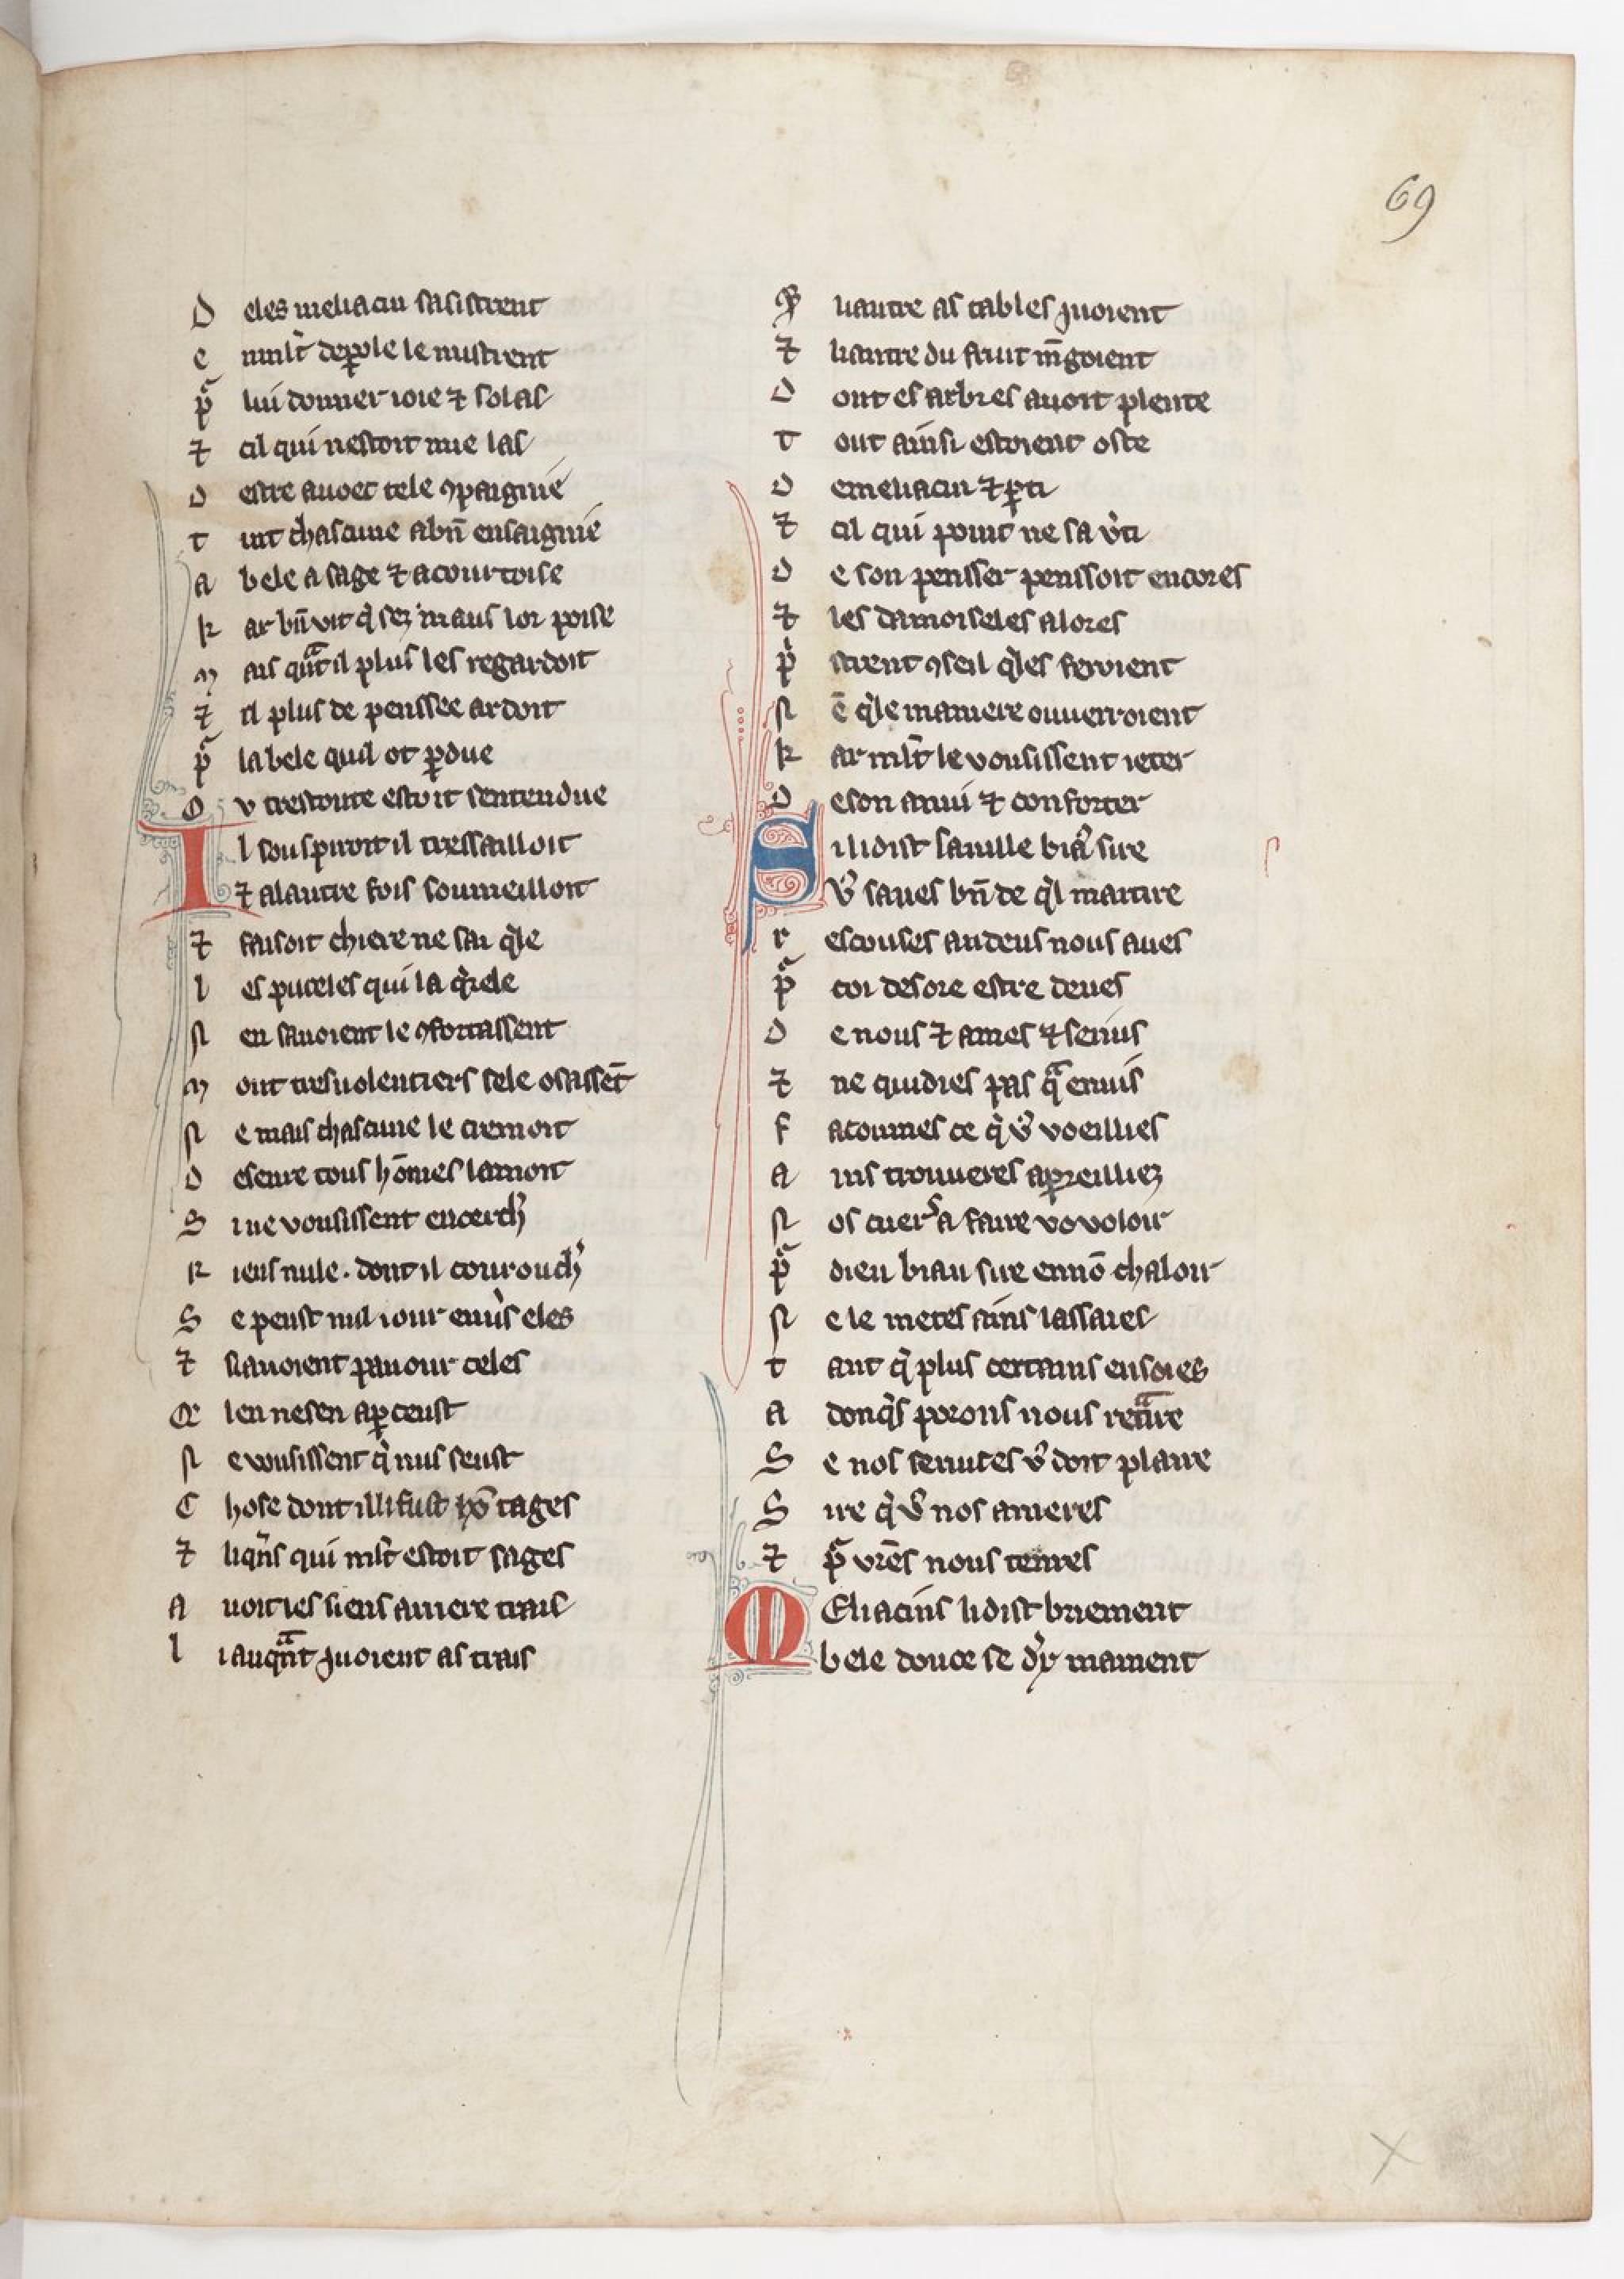 69
D eles meliacin sasistrent
e nmlt̃ de ꝑole le mistrent
pᵃ lui donner ioie ⁊ solas
⁊ cil qui nestoit mie las
D estre auoec tele ꝯpaignie
t int chascune a bn̄ ensaignie
a bele a sage ⁊ a courtoise
k ar bn̄ vit q̇ sez maus lor poise
m ais qᵃnt il plus les regardoit
⁊ il plus de penssee ardoit
pᵃ la bele quil ot ꝑdue
O v trestoute estoit sentendue
I l souspiroit il tressailloit
⁊ a lautre fois soumeilloit
⁊ faisoit chiere ne sai q̇le
l es puceles qui la q̇rele
N en sauoient le ꝯfortassent
m out tres uolentiers sele osassēt
N e mais chascune le cremoit
D eseure tous hōmes lamoit
S i ne vousissent encerch̾
R iens nule . dont il courouch̾
S e peust nul iour enu̾s eles
⁊ si auoient paour celes
Q̄ len ne sen aꝑceust
N e vousissent q̇ nus seust
C hose dont il li fust hōtages
⁊ li qn̄s qui mlt̃ estoit sages
A uoit les siens arriere trais
l i auqᵃnt iuoient as trais
q̃ li autre as tables iuoient
⁊ li autre du fruit mēgoient
D ont es arbres auoit plente
t out ainsi estoient oste
D e meliacin ⁊ ꝑti
⁊ cil qui point ne sa v̾ti
D e son pensser penssoit encores
⁊ les damoiseles alores
p̾ strent ꝯseil q̇les feroient
N ē q̇le maniere ouuerroient
k ar mlt̃ le vousissent ieter
D e son anui ⁊ conforter
S i li dist sanille biaᵘ sire
v̾ saues bn̄ de q̇l martire
r escouses andeus nous aues
pᵃ coi desore estre deues
D e nous ⁊ ames ⁊ seruis
⁊ ne quidies pas qᵃ enuis
f acoumes ce q̇ v̾ voeillies
a ins trouueres aꝑeilliez
N os cuers a faire vo voloir
pᵃ dieu biau sire en nō chaloir
N e le metes ains lassaies
t ant q̇ plus certains en soies
a donq̇s porons nous retᵃire
S e nos seruices v̾ doit plaire
S ire q̇ v̾ nos ameres
⁊ pᵃ vrēs nous tenres
M Eliacins li dist briement
bele douce se dix mament